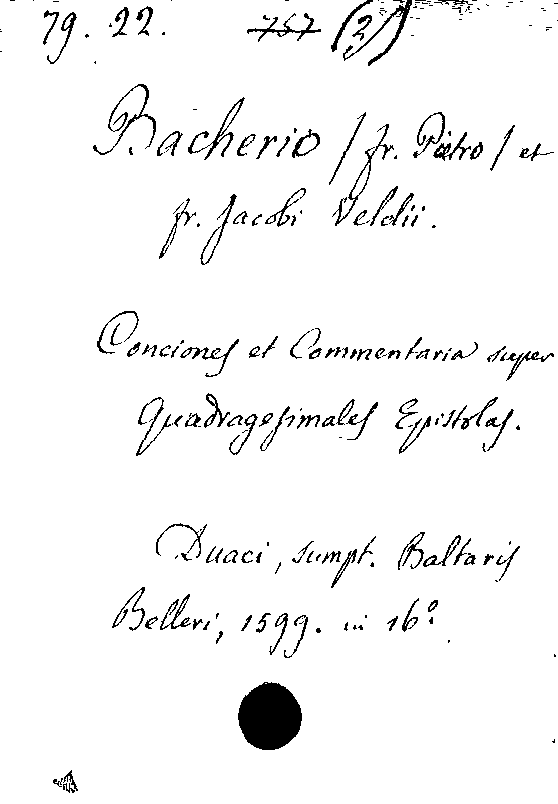 79. 22. 757 (2)
Bacherio / fr. Pietro / et
fr. Jacobi Veldii.
Conciones et Commentaria super
Quadragesimales Epistolas.
Duaci, sumpt. Baltaris
Belleri, 1599. in 16º